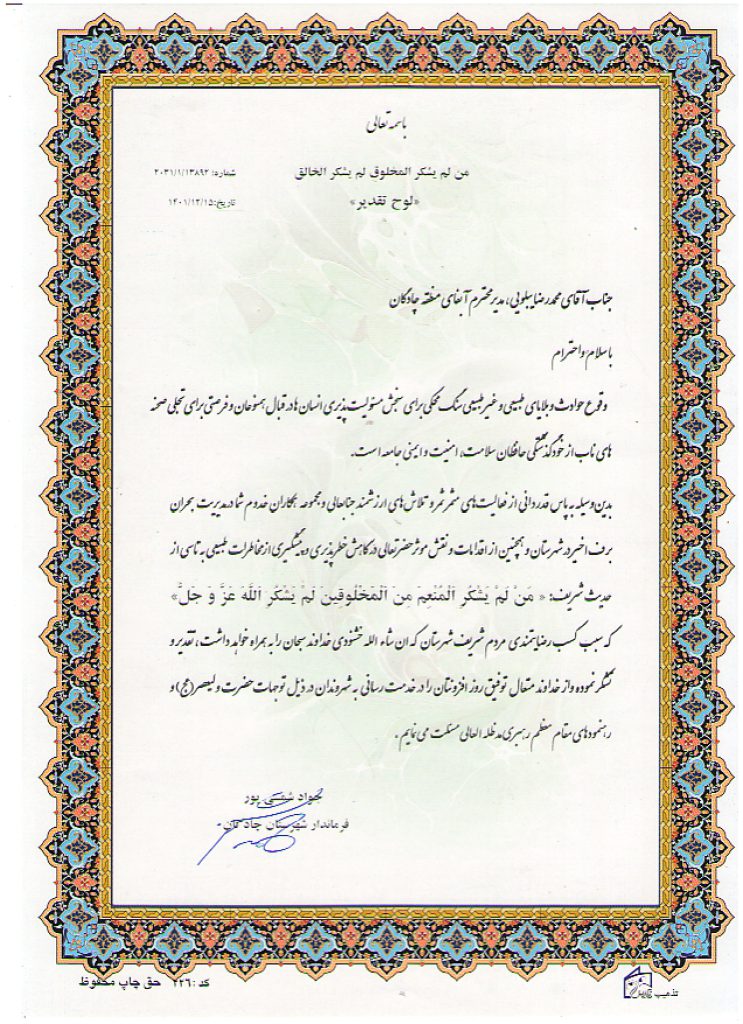 باسمه تعالی
من لم یشکر المخلوق لم یشکر الخالق
شماره: ۲۰۳۱/۱/۱۳۸۹۲
«لوح تقدیر»
تاریخ:۱۴۰۱/۱۲/۱۵
جناب آقای محمدرضا ببلویی، مدیر محترم آبفای منطقه چادگان
با سلام و احترام
وقوع حوادث و بلایای طبیعی و غیر طبیعی سنگ محکی برای سنجش مسئولیت پذیری انسان ها در قبال همنوعان و فرصتی برای تجلی صحنه
های ناب از خودگذشتگی حافظان سلامت، امنیت و ایمنی جامعه است.
بدین وسیله به پاس قدردانی از فعالیت های مثمر ثمر و تلاش های ارزشمند جنابعالی و مجموعه همکاران خدوم شما در مدیریت بحران
برف اخیر در شهرستان و همچنین از اقدامات و نقش موثر حضرتعالی در کاهش خطر پذیری و پیشگیری از مخاطرات طبیعی به تاسی از
حدیث شریف: « مَنْ لَمْ یَشْکُرِ الْمُنْعِمَ مِنَ الْمَخْلُوقِینَ لَمْ یَشْکُرِ اللَّهَ عَزَّ وَ جَلَّ»
که سبب کسب رضایتمندی مردم شریف شهرستان که ان شاء الله خشنودی خداوند سبحان را به همراه خواهد داشت، تقدیر و
تشکر نموده و از خداوند متعال توفیق روز افزونتان را در خدمت رسانی به شهروندان در ذیل توجهات حضرت ولیعصر(عج) و
رهنمودهای مقام معظم رهبری مدظله العالی مسئلت می نمایم .
جواد شمسی پور
فرماندار شهرستان چادگان
کد :۲۲۶ حق چاپ محفوظ
تذهیب